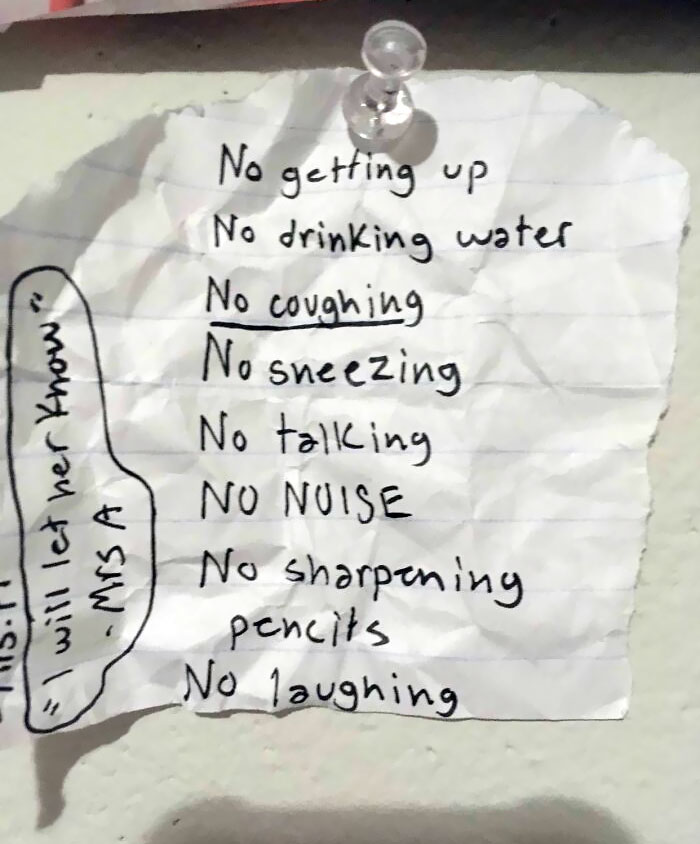 No getting up
No drinking water
No coughing
No sneezing
No talking
NO NOISE
No sharpening
pencils
No laughing
"I will let her know"
- Mrs A